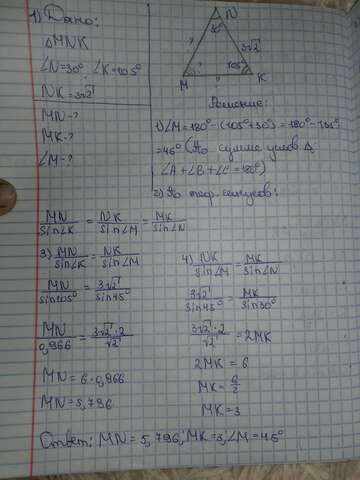 1) Дано:
△MNK
∠N=30° ∠K=105°
NK=3√2
MN-?
MK-?
∠M-?
N
30°
?
3√2
?
105°
M
?
K
Решение:
1) ∠M=180°-(105°+30°)=180°-135°
=45° (По сумме углов △
∠A+∠B+∠C=180°)
2) По теор. синусов:
MN/sin∠K = NK/sin∠M = MK/sin∠N
3) MN/sin∠K = NK/sin∠M
MN/sin105° = 3√2/sin45°
MN/0,966 = 3√2·2/√2
MN=6·0,966
MN=5,796
4) NK/sin∠M = MK/sin∠N
3√2/sin45° = MK/sin30°
3√2·2/√2 = 2MK
2MK=6
MK=6/2
MK=3
Ответ: MN=5,796; MK=3, ∠M=45°